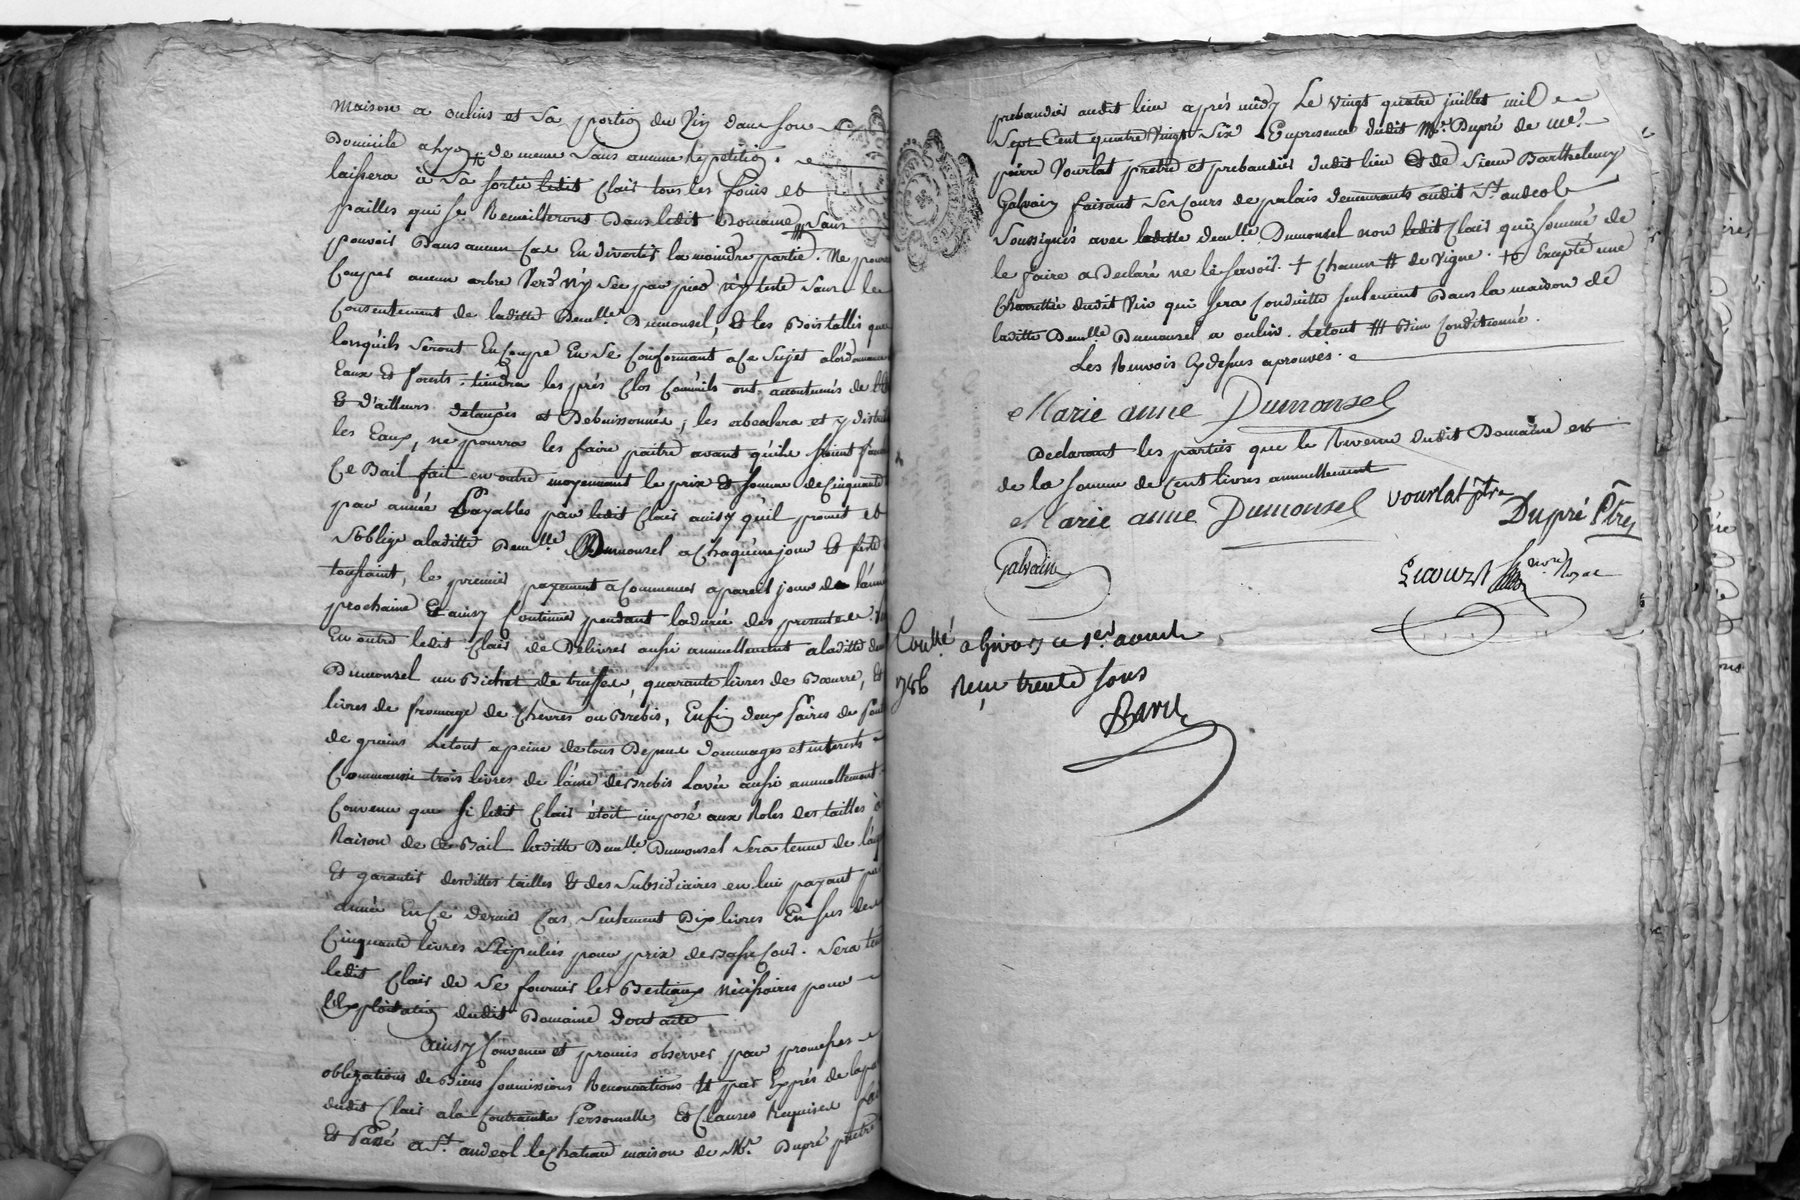 maison a oulins et sa portion du vin dans son
Domicile a Lyon + de meme sans aucune repetition.
laissera à sa sortie ledit Clair tous les foins et
pailles qui se Reuillleront Dans ledit Domaine, sans
pouvoir Dans aucun Cas En divertir la moindre partie. Ne pourra
Couper aucun arbre Verd n'y sec par pied n'y teste sans le
Consentement de laditte Demlle Dumonsel, Et les Bois taillis que
lorsquils seront En Coupe En se Conformant a Ce Sujet a lordonnance
Eaux Et forets. tiendra les prés Clos Comm'ils ont accoutumés de
Et d'ailleurs detaupés et Debuissonnés, les abealera et y distri
les Eaux, ne pourra les faire paitre avant quils soient
Ce Bail fait en outre moyennant le prix Et somme de Cinquante
par année Payables par ledit Clair ainsy quil promet et
S'oblige a laditte Demlle Dumonsel a Chaque jour Et feste
toussaint, le premier payement a Commencer a pareil jour de l'année
prochaine Et ainsy Continuer pendant la durée des presentes.
En outre ledit Clair de Délivrer aussi annuellement a laditte
Dumonsel un Bichet de truffes, quarante livres de Beurre, Et
livres de fromage de Chevres ou Brebis, Enfin deux paires de
de grains Le tout a peine de tous Depens dommages et interests
Comm'aussi trois livres de laine de Brebis Lavée aussi annuellement
Convenu que si ledit Clair étoit imposé aux Roles des tailles à
Raison de Ce Bail laditte Demlle Dumonsel Sera tenue de
Et garantir desdittes tailles Et des Subsidiaires en lui payant par
année En Ce dernier Cas, Seulement Dix livres En sus des
Cinquante livres Stipulées pour prix de Basse Cour. Sera tenu
ledit Clair de Se fournir les Bestiaux nécessaires pour
l'Exploitation dudit Domaine Dont acte
Ainsy Convenu et promis observer par promesses
obligations de Biens soumissions Renonciations Et par Exprés de la part
dudit Clair a la Contrainte Personnelle Et Clauses Requises
Et Passé a St. andeol le Chateau maison de Mr. Dupré pretre
prebandier audit lieu après midy Le vingt quatre juillet mil
Sept Cent quatre Vingt Six En presence dudit Mr. Dupré de me.
pierre Vourlat pretre et prebandier dudit lieu Et de Sieur Barthelemy
Galvain faisant ses Cours de palais demeurants audit St. andeol
Soussignés avec laditte demlle. Dumonsel non ledit Clair qui sommé de
le faire a Declaré ne le savoir. + Chacun # de Vigne. + Excepté une
Charretée dudit Vin qui sera Conduitte seulement Dans la maison de
laditte Demlle. Dumonsel a oulins. Letout # Bien Conditionné.
Les Renvois Cy dessus aprouvés.
Marie anne Dumonsel
Declarant les parties que le Revenu dudit Domaine est
de la somme de Cent livres annuellement
Marie anne Dumonsel vourlat ptre
Dupré Ptre
Galvain
Notre Royal
Coullé a Givors ce 1er. aoust
1786 Reçu trente sous